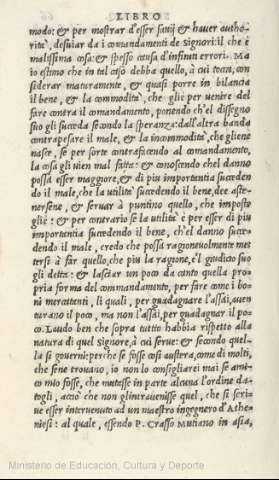 LIBRO
modo: & per mostrar d'esser sauij & hauer autho-
rità, desuiar da i comandamenti de signori: il che è
malissima cosa: & spesso causa d'infiniti errori. Ma
io estimo che in tal caso debba quello, à cui tocca, con
siderar maturamente, & quasi porre in bilancia
il bene, & la commodità, che gli è per uenire del
fare contra il comandamento, ponendo ch'el dissegno
suo gli succeda secondo la speranza: dall'altra banda
contrapesare il male, & la incommodità, che gliene
nasce, se per sorte contrafacendo al comandamento,
la cosa gli uien mal fatta: & conoscendo chel danno
possa esser maggiore, & di piu importantia succeden
do il male, che la utilità succedendo il bene, dee aste-
nersene, & seruar à puntino quello, che imposto
gliè: & per contrario se la utilità è per esser di piu
importantia succedendo il bene, ch'el danno succe-
dendo il male, credo che possa ragioneuolmente met
tersi à far quello, che piu la ragione, e'l giudicio suo
gli detta: & lasciar un poco da canto quella pro-
pria forma del commandamento, per fare come i bo-
ni mercatanti, li quali, per guadagnare l'assai, auen
turano il poco, ma non l'assai, per guadagnar il po-
co. Laudo ben che sopra tutto habbia rispetto alla
natura di quel signore, à cui serue: & secondo quel-
la si gouerni: perche se fosse cosi austera, come di molti,
che sene trouano, io non lo consigliarei mai se ami-
co mio fosse, che mutasse in parte alcuna l'ordine da-
togli, accio che non glintrauenisse quel, che si scri-
ue esser interuenuto ad un maestro ingegnero d'Athe-
niesi: al quale, essendo P. Crasso Mutiano in asia,
Ministerio de Educación, Cultura y Deporte